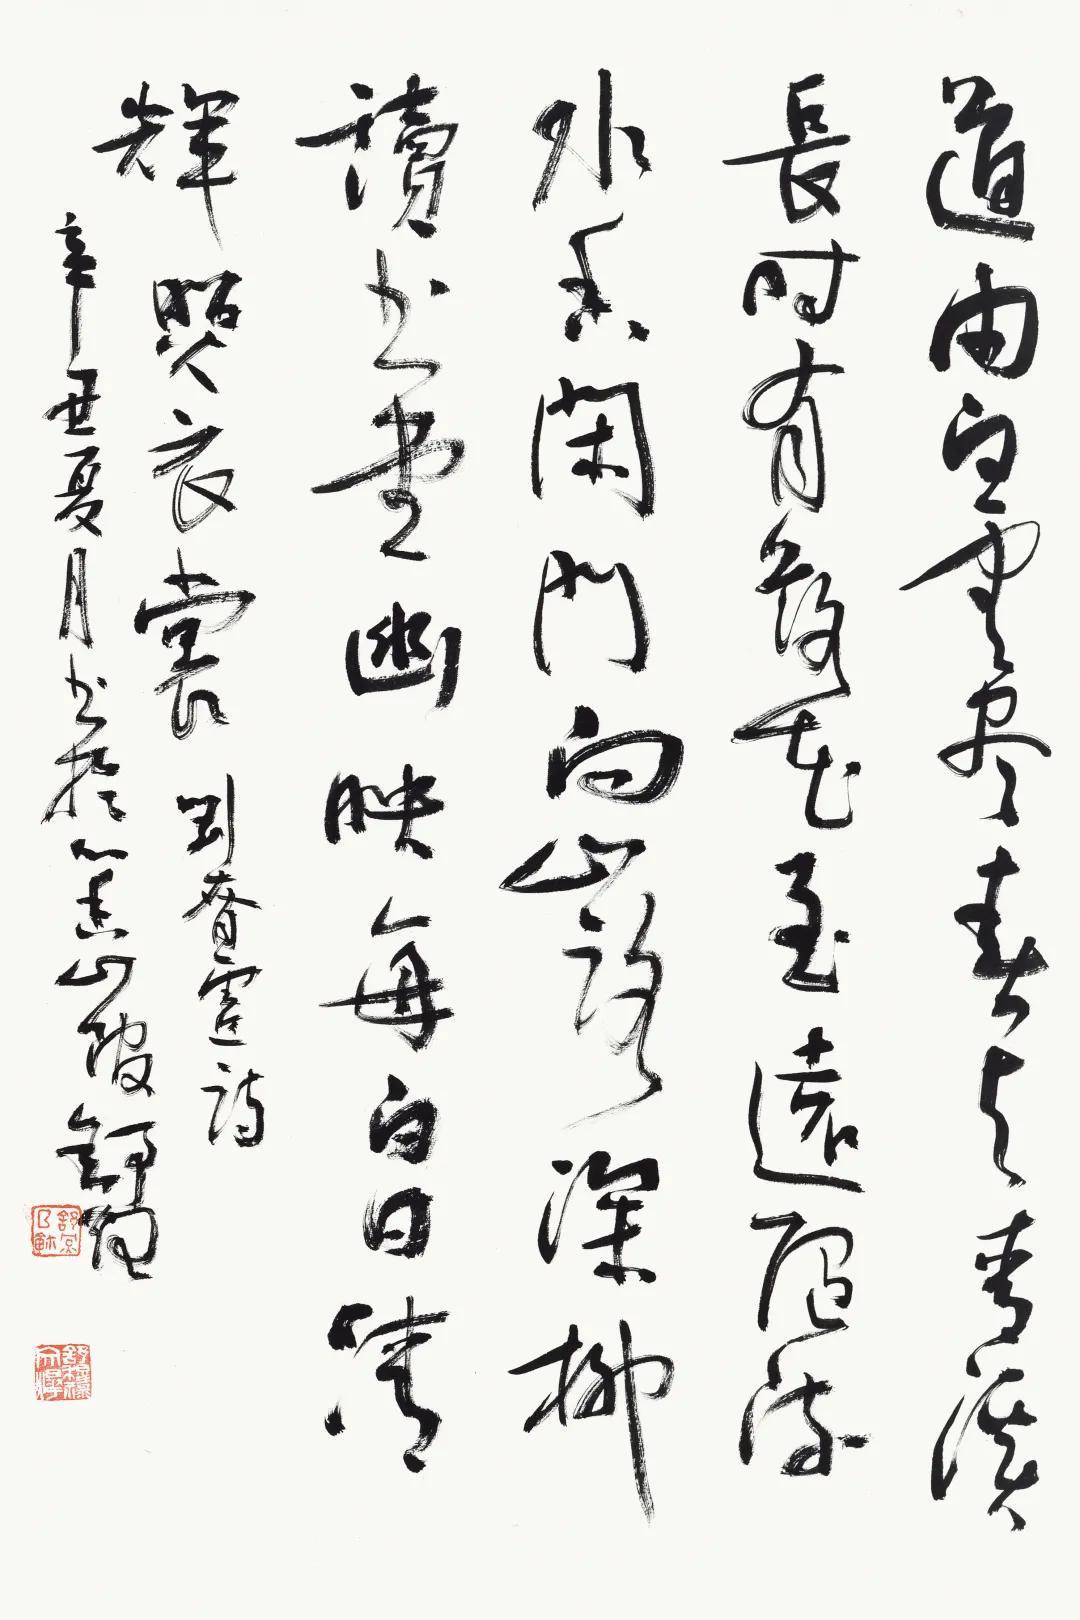 道由白雲盡春與青溪
長時有落花至遠隨流
水香閑門向山路深柳
讀書堂幽映每白日清
輝照衣裳 劉昚虛詩
辛丑夏月書於山舒炯